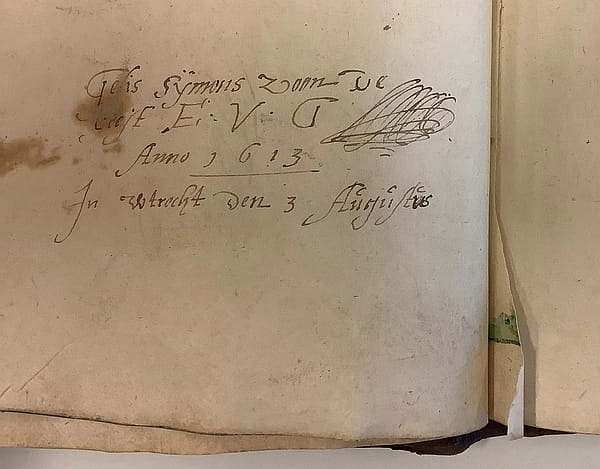 Gelis Sÿmons zoon De
Ei : V · G
Anno 1613
In wtrecht den 3 Augustus